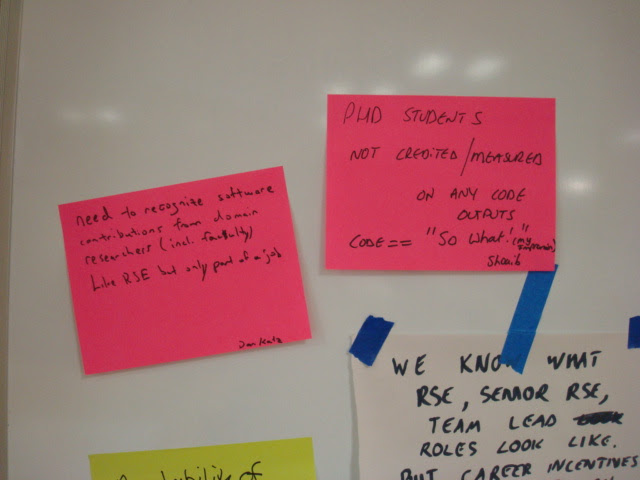 need to recognize software
contributions from domain
researchers (incl. faculty)
Like RSE but only part of a job
Dan Katz
PHD STUDENTS
NOT CREDITED/MEASURED
ON ANY CODE
OUTPUTS
CODE== "So What!" (my impression)
Shoaib
WE KNOW WHAT
RSE, SENIOR RSE,
TEAM LEAD
ROLES LOOK LIKE.
BUT CAREER INCENTIVES
of